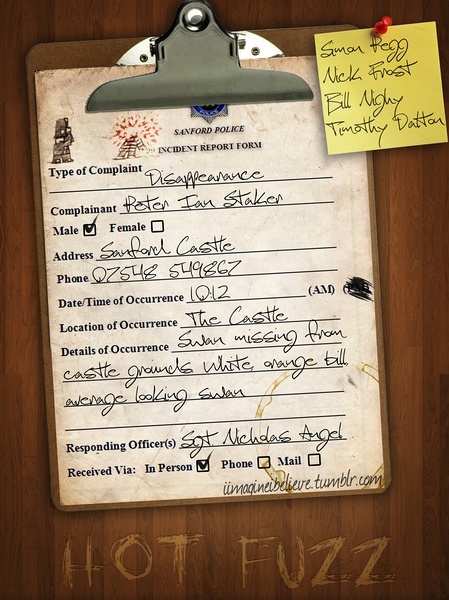 Simon Pegg
Nick Frost
Bill Nighy
Timothy Dalton
SANFORD POLICE
INCIDENT REPORT FORM
Type of Complaint Disappearance
Complainant Peter Ian Staker
Male Female
Address Sanford Castle
Phone 07548 549867
Date/Time of Occurrence 10:12 (AM)
Location of Occurrence The Castle
Details of Occurrence Swan missing from
castle grounds White, orange bill,
average looking swan
Responding Officer(s) Sgt Nicholas Angel
Received Via: In Person Phone Mail
iimagineibelieve.tumblr.com
HOT FUZZ